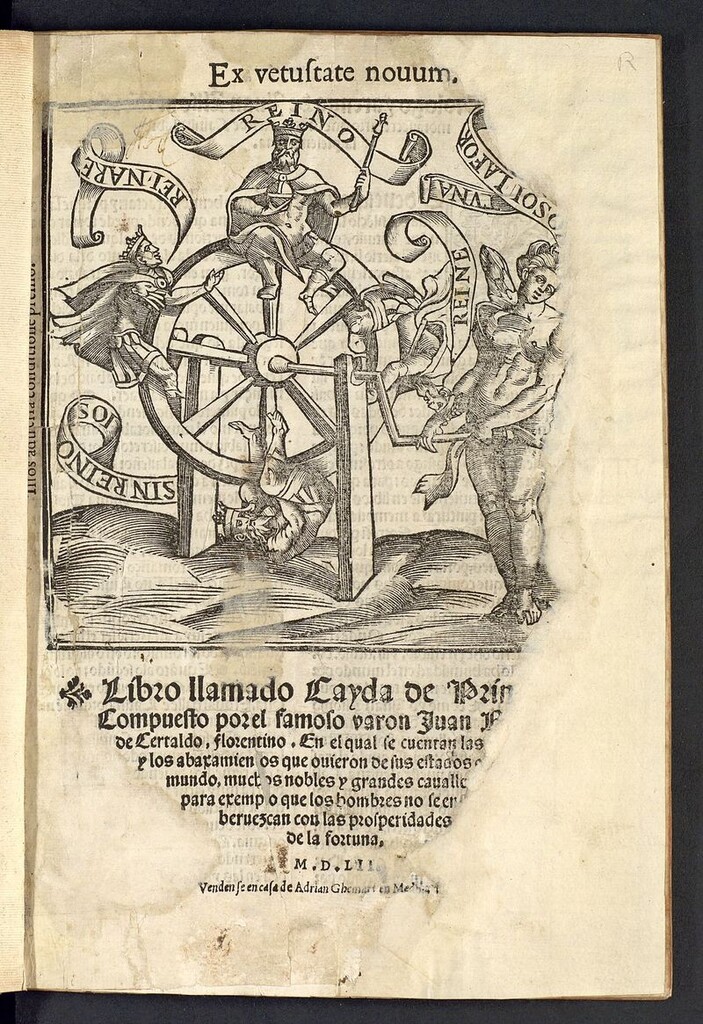 Ex vetuſtate nouum.
REINO
REI·NARE
SOI LAFOR
VNA
REINE
SIN REINO
IOS
Libro llamado Cayda de Prin
Compueſto por el famoſo varon Juan
de Certaldo, florentino. En el qual ſe cuentan las
y los abaxamien os que ouieron de ſus eſtados
mundo, much os nobles y grandes cauall
para exemp o que los hombres no ſe
beruezcan con las proſperidades
de la fortuna.
M.D.LII.
Venden ſe en caſa de Adrian